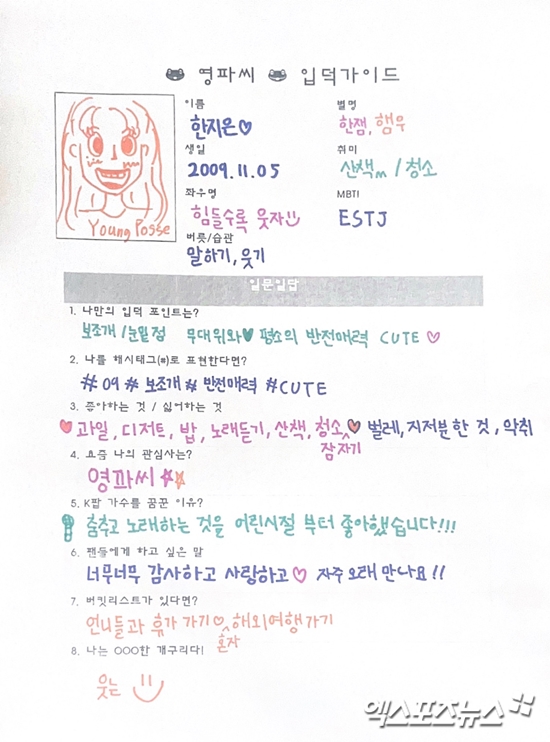 영파씨 입덕가이드
이름 별명
한지은♡ 한잼, 햄우
생일 취미
2009.11.05 산책 / 청소
좌우명 MBTI
힘들수록 웃자 ESTJ
버릇/습관
말하기, 웃기
Young Posse
일문일답
1. 나만의 입덕 포인트는?
보조개 / 눈밑점 무대위와♥ 평소의 반전매력 CUTE ♡
2. 나를 해시태그(#)로 표현한다면?
#09 #보조개 #반전매력 #CUTE
3. 좋아하는 것 / 싫어하는 것
♥과일, 디저트, 밥, 노래듣기, 산책, 청소, 벌레, 지저분한 것, 악취
잠자기
4. 요즘 나의 관심사는?
영파씨 ☆☆
5. K팝 가수를 꿈꾼 이유?
춤추고 노래하는 것을 어린시절 부터 좋아했습니다!!!
6. 팬들에게 하고 싶은 말
너무너무 감사하고 사랑하고♡ 자주 오래 만나요!!
7. 버킷리스트가 있다면?
언니들과 휴가 가기♡, 해외여행 가기
혼자
8. 나는 OOO한 개구리다!
웃는
엑스포츠뉴스